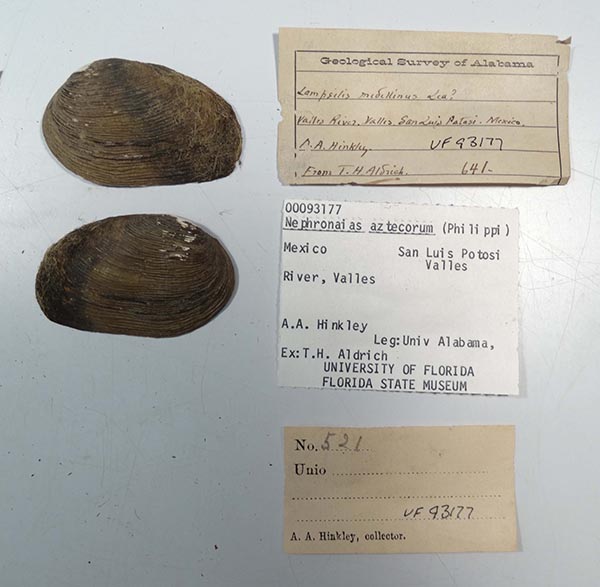 Geological Survey of Alabama
Lampsilis medellinus Lea?
Valles River. Valles. San Luis Potosi. Mexico.
A.A. Hinkley. UF 93177
From T.H. Aldrich. 641-
00093177
Nephronaias aztecorum (Philippi)
Mexico San Luis Potosi
Valles
River, Valles
A.A. Hinkley
Leg:Univ Alabama,
Ex:T.H. Aldrich
UNIVERSITY OF FLORIDA
FLORIDA STATE MUSEUM
No. 521
Unio
UF 93177
A. A. Hinkley, collector.